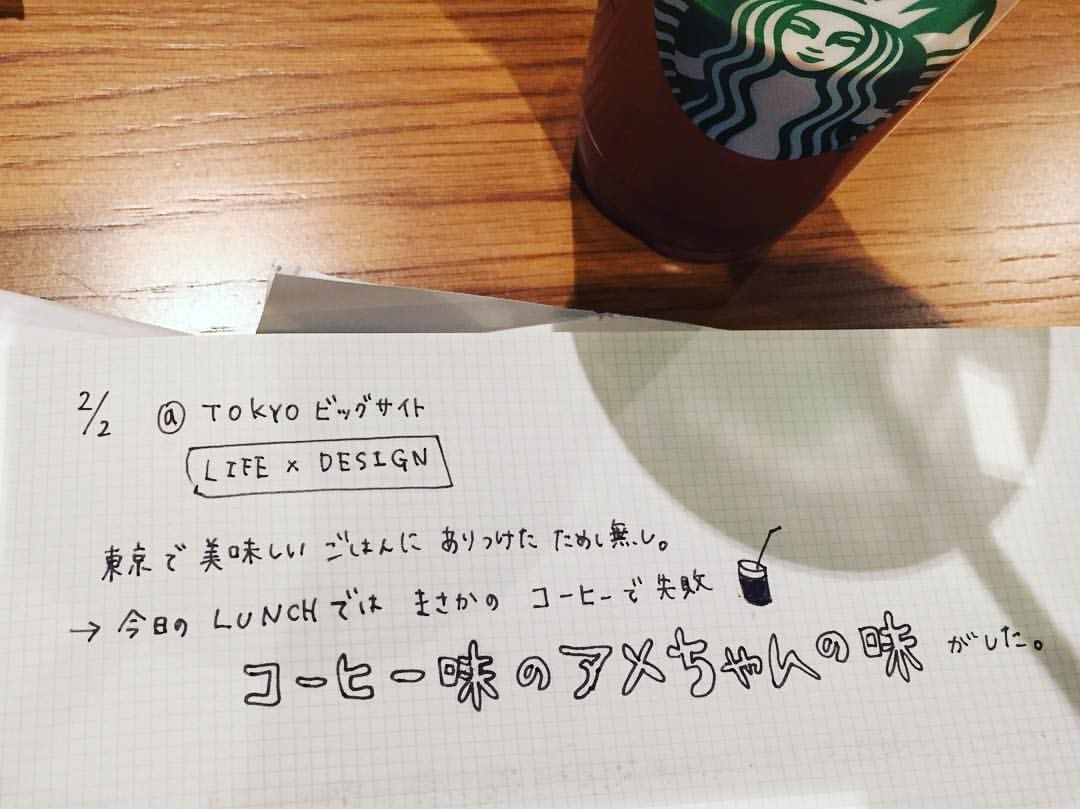 2/2 @ TOKYO ビッグサイト
LIFE × DESIGN
東京で美味しいごはんにありつけたためし無し。
→ 今日の LUNCHでは まさかの コーヒーで失敗
コーヒー味のアメちゃんの味がした。